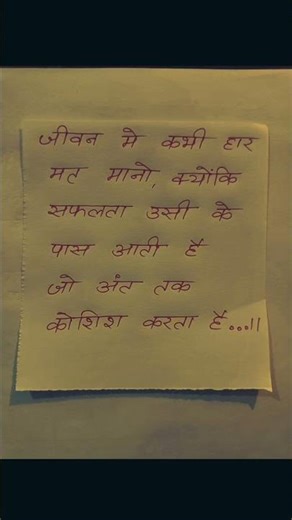 जीवन मे कभी हार
मत मानो, क्योंकि
सफलता उसी के
पास आती है
जो अंत तक
कोशिश करता है...!!